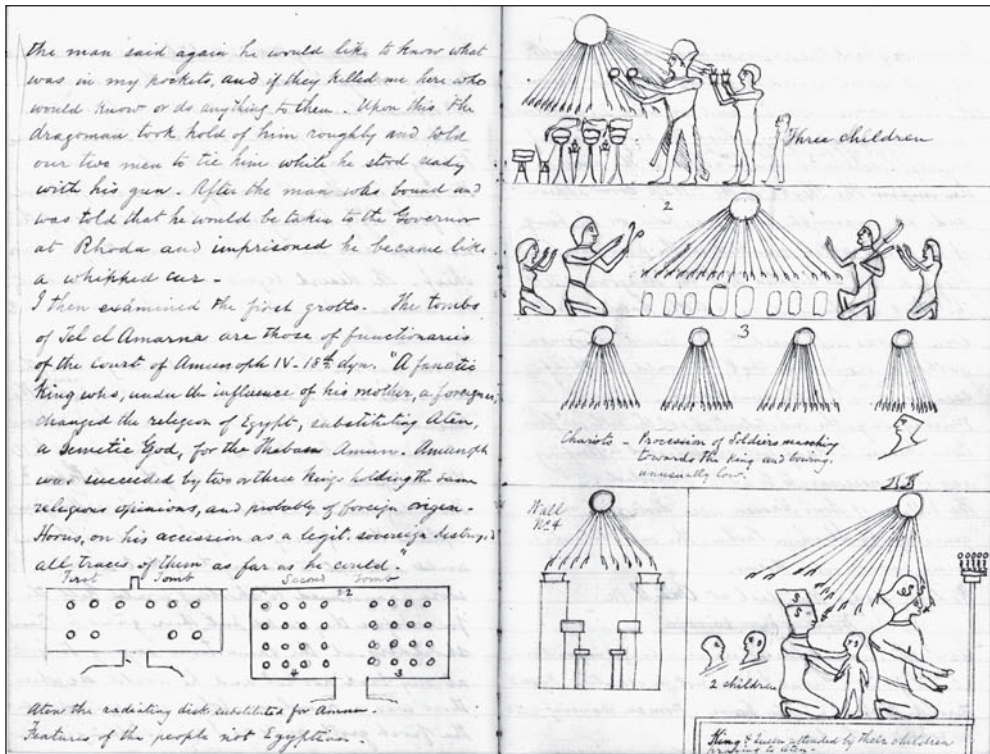 the man said again he would like to know what
was in my pockets, and if they killed me here who
would know or do anything to them. Upon this the
dragoman took hold of him roughly and told
our two men to tie him while he stood ready
with his gun. After the man was bound and
was told that he would be taken to the Governor
at Rhoda and imprisoned he became like
a whipped cur -
I then examined the first grotto. The tombs
of Tel el Amarna are those of functionaries
of the court of Amunoph IV. 18th dyn. "A fanatic
King who, under the influence of his mother, a foreigner,
changed the religion of Egypt, substituting Aten,
a Semetic God, for the Theban Amun. Amunoph
was succeeded by two or three Kings holding the same
religious opinions, and probably of foreign origin.
Horus, on his accession as a legit. sovereign destroyed
all traces of them as far as he could."
First Tomb
Second Tomb
2
4
3
Aten the radiating disk substituted for Amun.
Features of the people not Egyptian.
Three children
2
3
Chariots - Procession of Soldiers marching
towards the King and bowing,
unusually low.
Wall
No. 4
2 children
King & Queen attended by their children
praying to Aten -